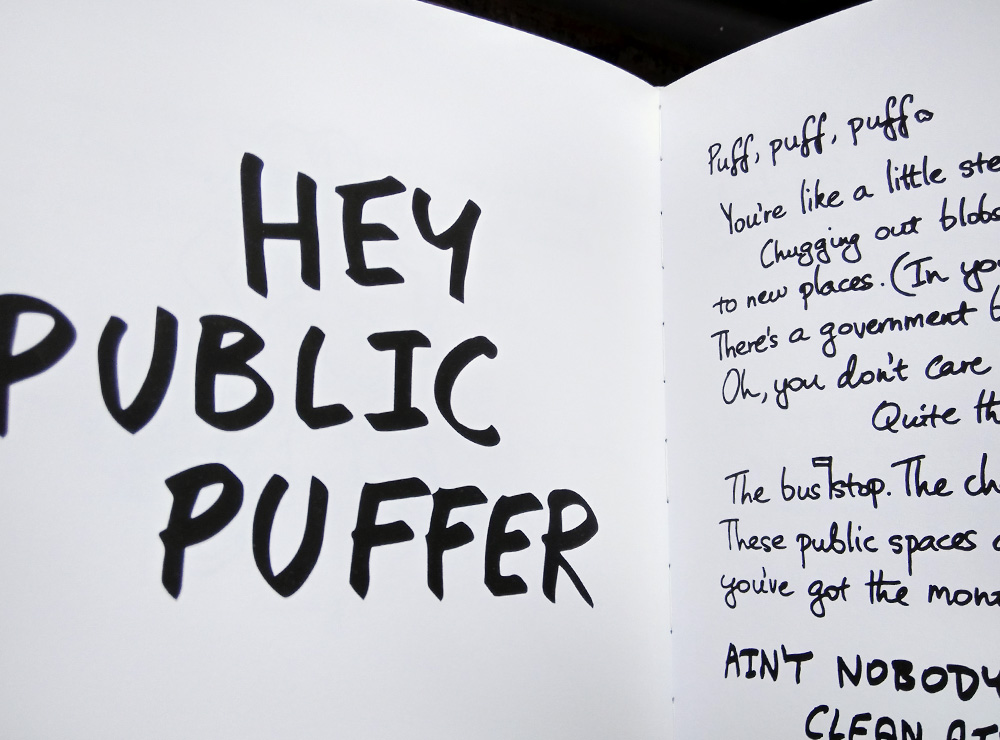 HEY
PUBLIC
PUFFER
Puff, puff, puff
You're like a little
Chugging out
to new places. (In
There's a government
Oh, you don't care
Quite
The bus stop. The
These public spaces
you've got the
AIN'T NOBODY
CLEAN